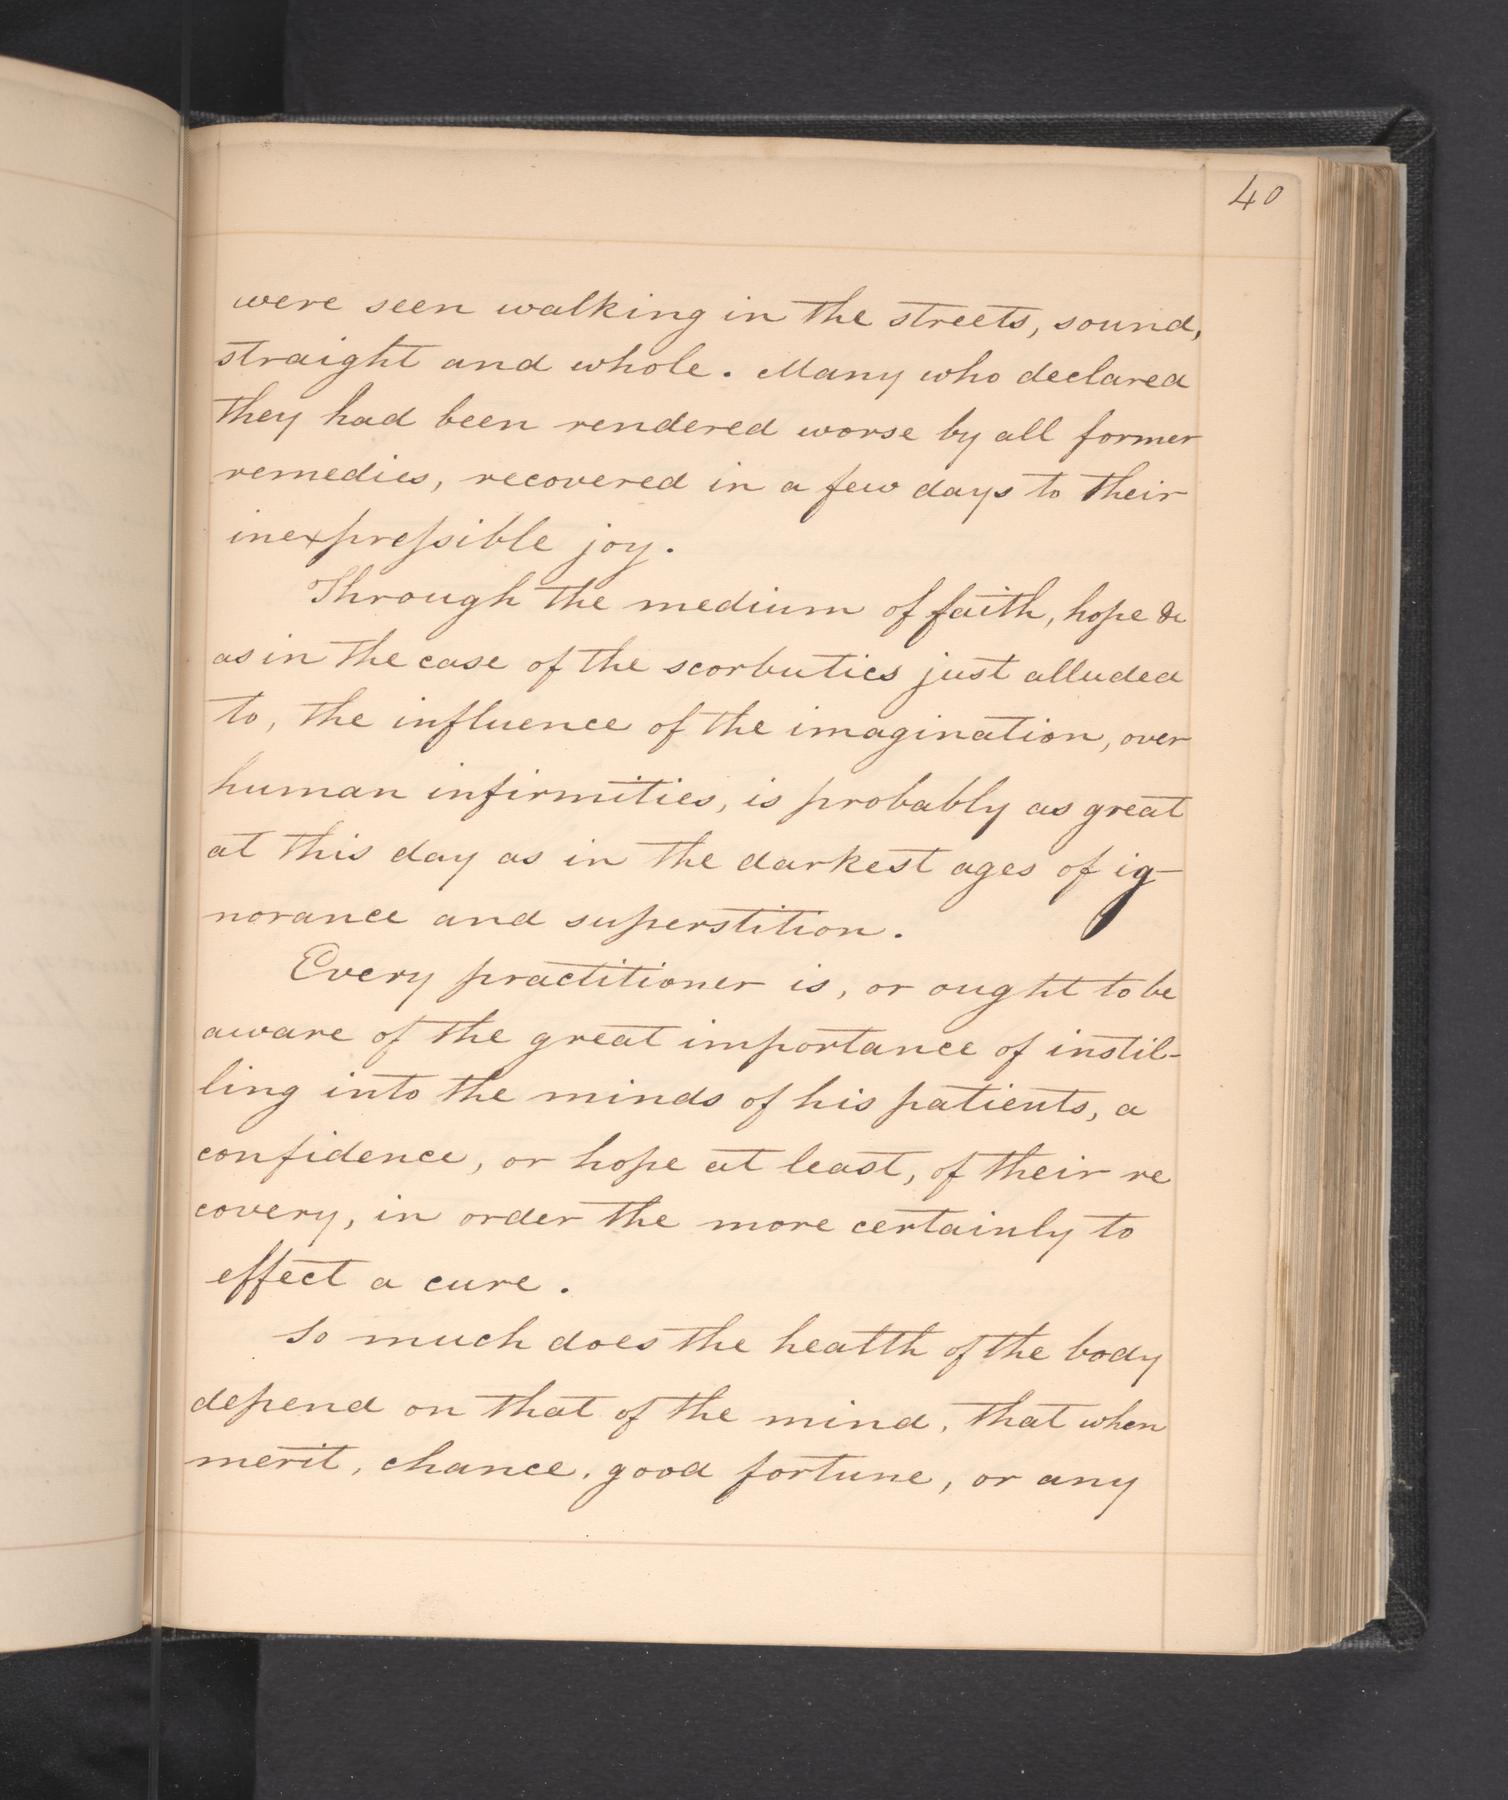 40
were seen walking in the streets, sound,
straight and whole. Many who declared
they had been rendered worse by all former
remedies, recovered in a few days to their
inexpreſsible joy.
Through the medium of faith, hope &c
as in the case of the scorbutics just alluded
to, the influence of the imagination, over
human infirmities, is probably as great
at this day as in the darkest ages of ig-
norance and superstition.
Every practitioner is, or ought to be
aware of the great importance of instil-
ling into the minds of his patients, a
confidence, or hope at least, of their re
covery, in order the more certainly to
effect a cure.
So much does the health of the body
depend on that of the mind, that when
merit, chance, good fortune, or any